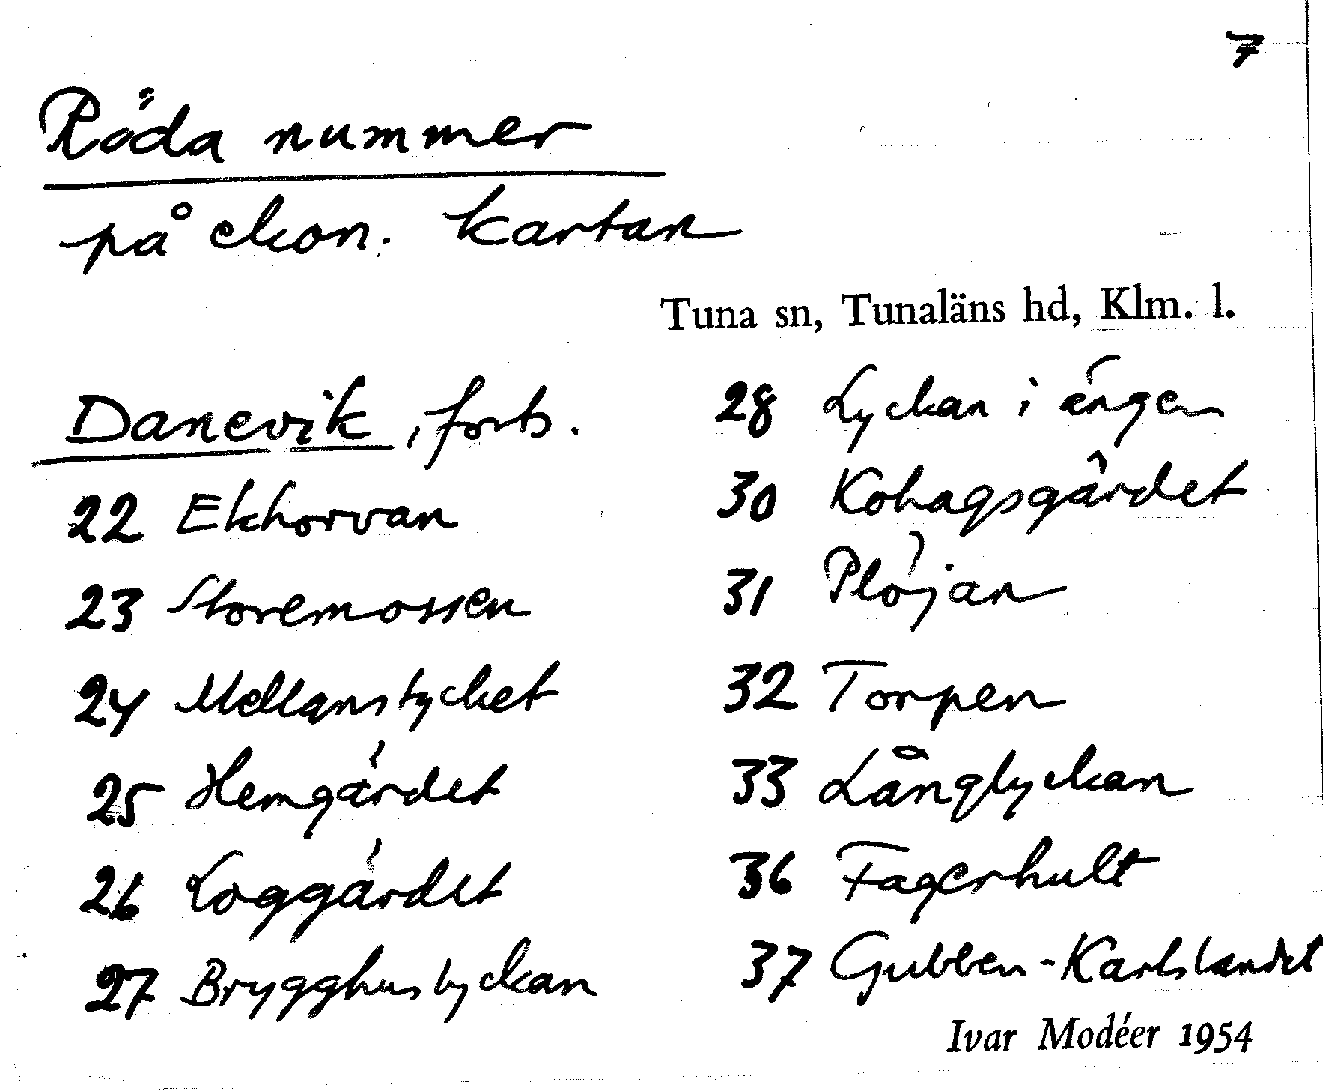 7
Röda nummer
på ekon. kartan
Tuna sn, Tunaläns hd, Klm. l.
Danevik, forts.
22 Ekhorvan
23 Storemossen
24 Mellanstycket
25 Hemgärdet
26 Loggärdet
27 Brygghuslyckan
28 Lyckan i ängen
30 Kohagsgärdet
31 Plöjan
32 Torpen
33 Långlyckan
36 Fagerhult
37 Gubben-Karlslandet
Ivar Modéer 1954